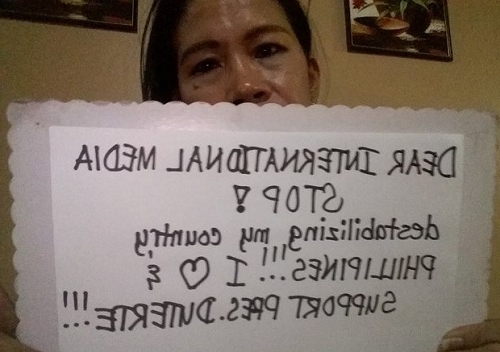 DEAR INTERNATIONAL MEDIA
STOP!
destabilizing my country
PHILLIPINES...!!! I ♡ &
SUPPORT PRES. DUTERTE...!!!